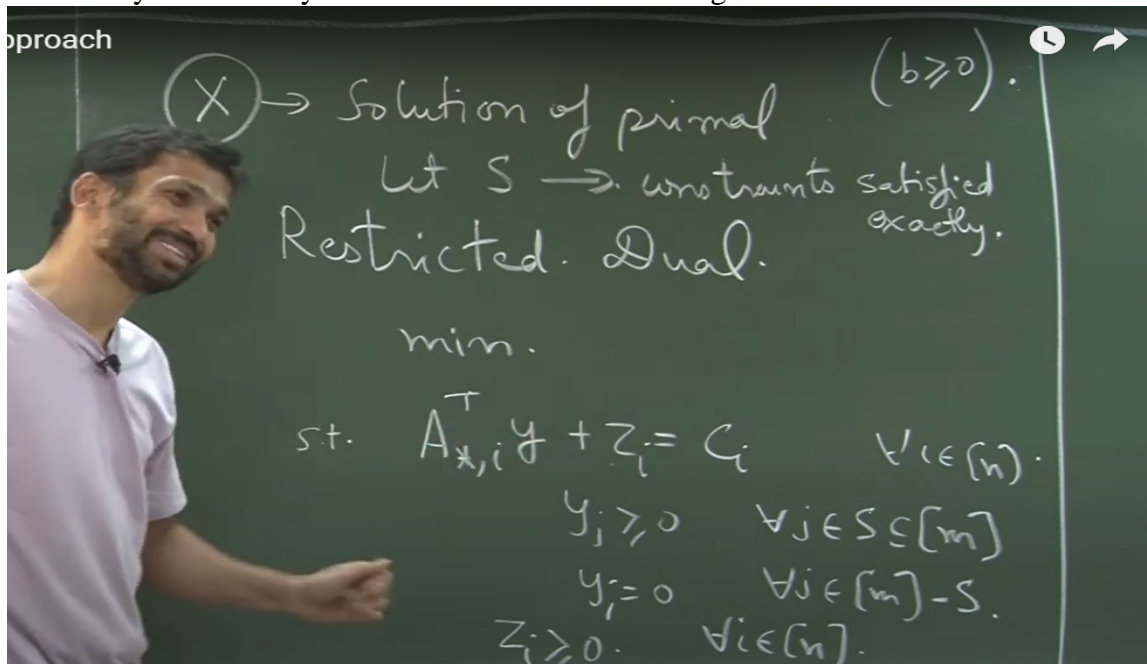 pproach
(b ≥ 0).
X → Solution of primal
Let S → constraints satisfied exactly.
Restricted. Dual.
min.
s.t. A^T_{*,i} y + z_i = c_i ∀i∈[n].
y_j ≥ 0 ∀j∈S⊆[m]
y_j = 0 ∀j∈[m]-S.
z_i ≥ 0. ∀i∈[n].